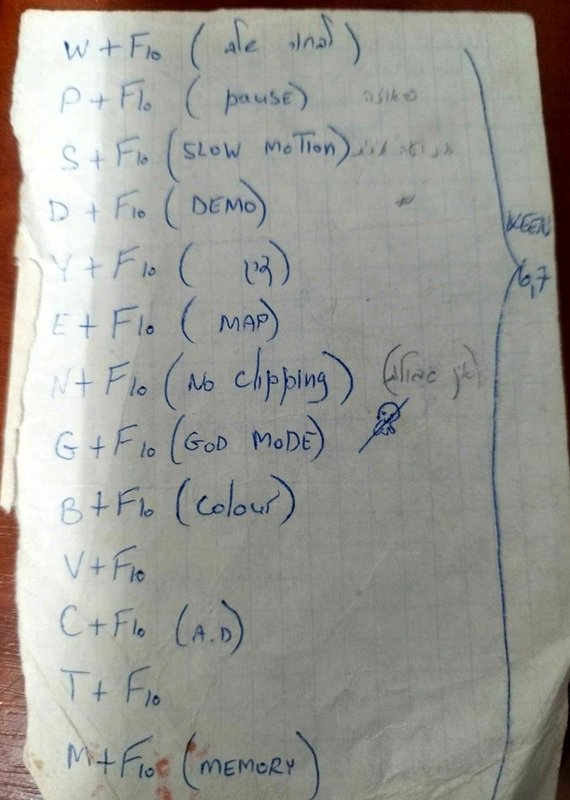 W + F10 ( לבחור שלב )
P + F10 ( pause ) פאוזה
S + F10 ( SLOW MOTION )
D + F10 ( DEMO )
Y + F10 ( )
E + F10 ( MAP )
N + F10 ( No clipping ) ( אין גבולות )
G + F10 ( GOD MODE )
B + F10 ( colour )
V + F10
C + F10 ( A.D )
T + F10
M + F10 ( MEMORY )
KEEN
6,7